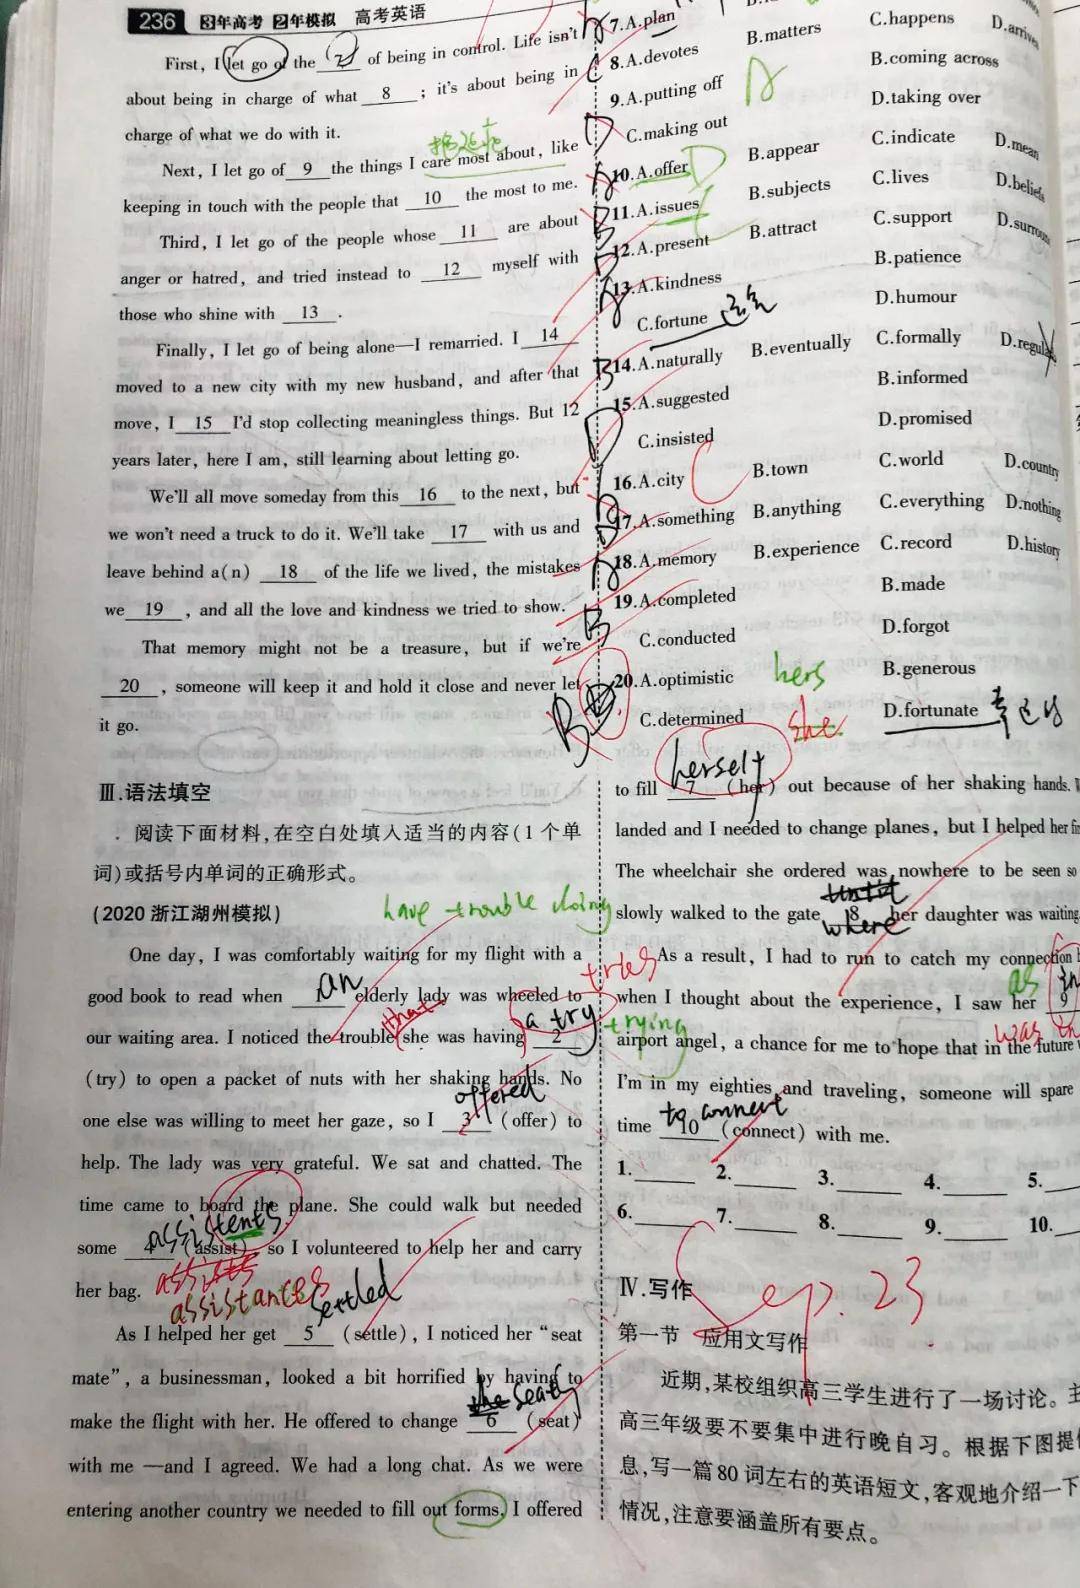 236 3年高考 2年模拟 高考英语
First, I let go of the of being in control. Life isn't
about being in charge of what 8 ; it's about being in
charge of what we do with it.
Next, I let go of 9 the things I care most about, like
keeping in touch with the people that 10 the most to me.
Third, I let go of the people whose 11 are about
anger or hatred, and tried instead to 12 myself with
those who shine with 13 .
Finally, I let go of being alone—I remarried. I 14
moved to a new city with my new husband, and after that
move, I 15 I'd stop collecting meaningless things. But 12
years later, here I am, still learning about letting go.
We'll all move someday from this 16 to the next, but
we won't need a truck to do it. We'll take 17 with us and
leave behind a(n) 18 of the life we lived, the mistakes
we 19 , and all the love and kindness we tried to show.
That memory might not be a treasure, but if we're
20 , someone will keep it and hold it close and never let
it go.
7.A.plan C.happens
B.matters
8.A.devotes B.coming across
9.A.putting off A D.taking over
C.making out
10.A.offer D B.appear C.indicate D.mean
11.A.issues B.subjects C.lives D.beliefs
12.A.present B.attract C.support
13.A.kindness B.patience
C.fortune 运气 D.humour
14.A.naturally B.eventually C.formally
15.A.suggested B.informed
C.insisted D.promised
16.A.city C B.town C.world D.country
17.A.something B.anything C.everything D.nothing
18.A.memory B.experience C.record D.history
19.A.completed B.made
C.conducted D.forgot
20.A.optimistic hers B.generous
C.determined she D.fortunate 幸运的
Ⅲ.语法填空
阅读下面材料,在空白处填入适当的内容(1个单
词)或括号内单词的正确形式。
(2020浙江湖州模拟) have trouble doing
One day, I was comfortably waiting for my flight with a
good book to read when an elderly lady was wheeled to
tries
that a try
our waiting area. I noticed the trouble she was having 2
trying
(try) to open a packet of nuts with her shaking hands. No
offered
one else was willing to meet her gaze, so I 3 (offer) to
help. The lady was very grateful. We sat and chatted. The
time came to board the plane. She could walk but needed
assistents
some 4 (assist), so I volunteered to help her and carry
her bag. assists
assistances settled
As I helped her get 5 (settle), I noticed her "seat
mate", a businessman, looked a bit horrified by having to
the seat
make the flight with her. He offered to change 6 (seat)
with me —and I agreed. We had a long chat. As we were
entering another country we needed to fill out forms. I offered
herself
to fill 7 (her) out because of her shaking hands.
landed and I needed to change planes, but I helped her
The wheelchair she ordered was nowhere to be seen so
until
slowly walked to the gate 8 her daughter was waiting.
where
As a result, I had to run to catch my connection
as in
when I thought about the experience, I saw her 9
was
airport angel, a chance for me to hope that in the future
I'm in my eighties and traveling, someone will spare
to connect
time 10 (connect) with me.
1. 2. 3. 4. 5.
6. 7. 8. 9. 10.
Ⅳ.写作 p.23
第一节 应用文写作
近期,某校组织高三学生进行了一场讨论。主
高三年级要不要集中进行晚自习。根据下图提
息,写一篇80词左右的英语短文,客观地介绍一下
情况,注意要涵盖所有要点。